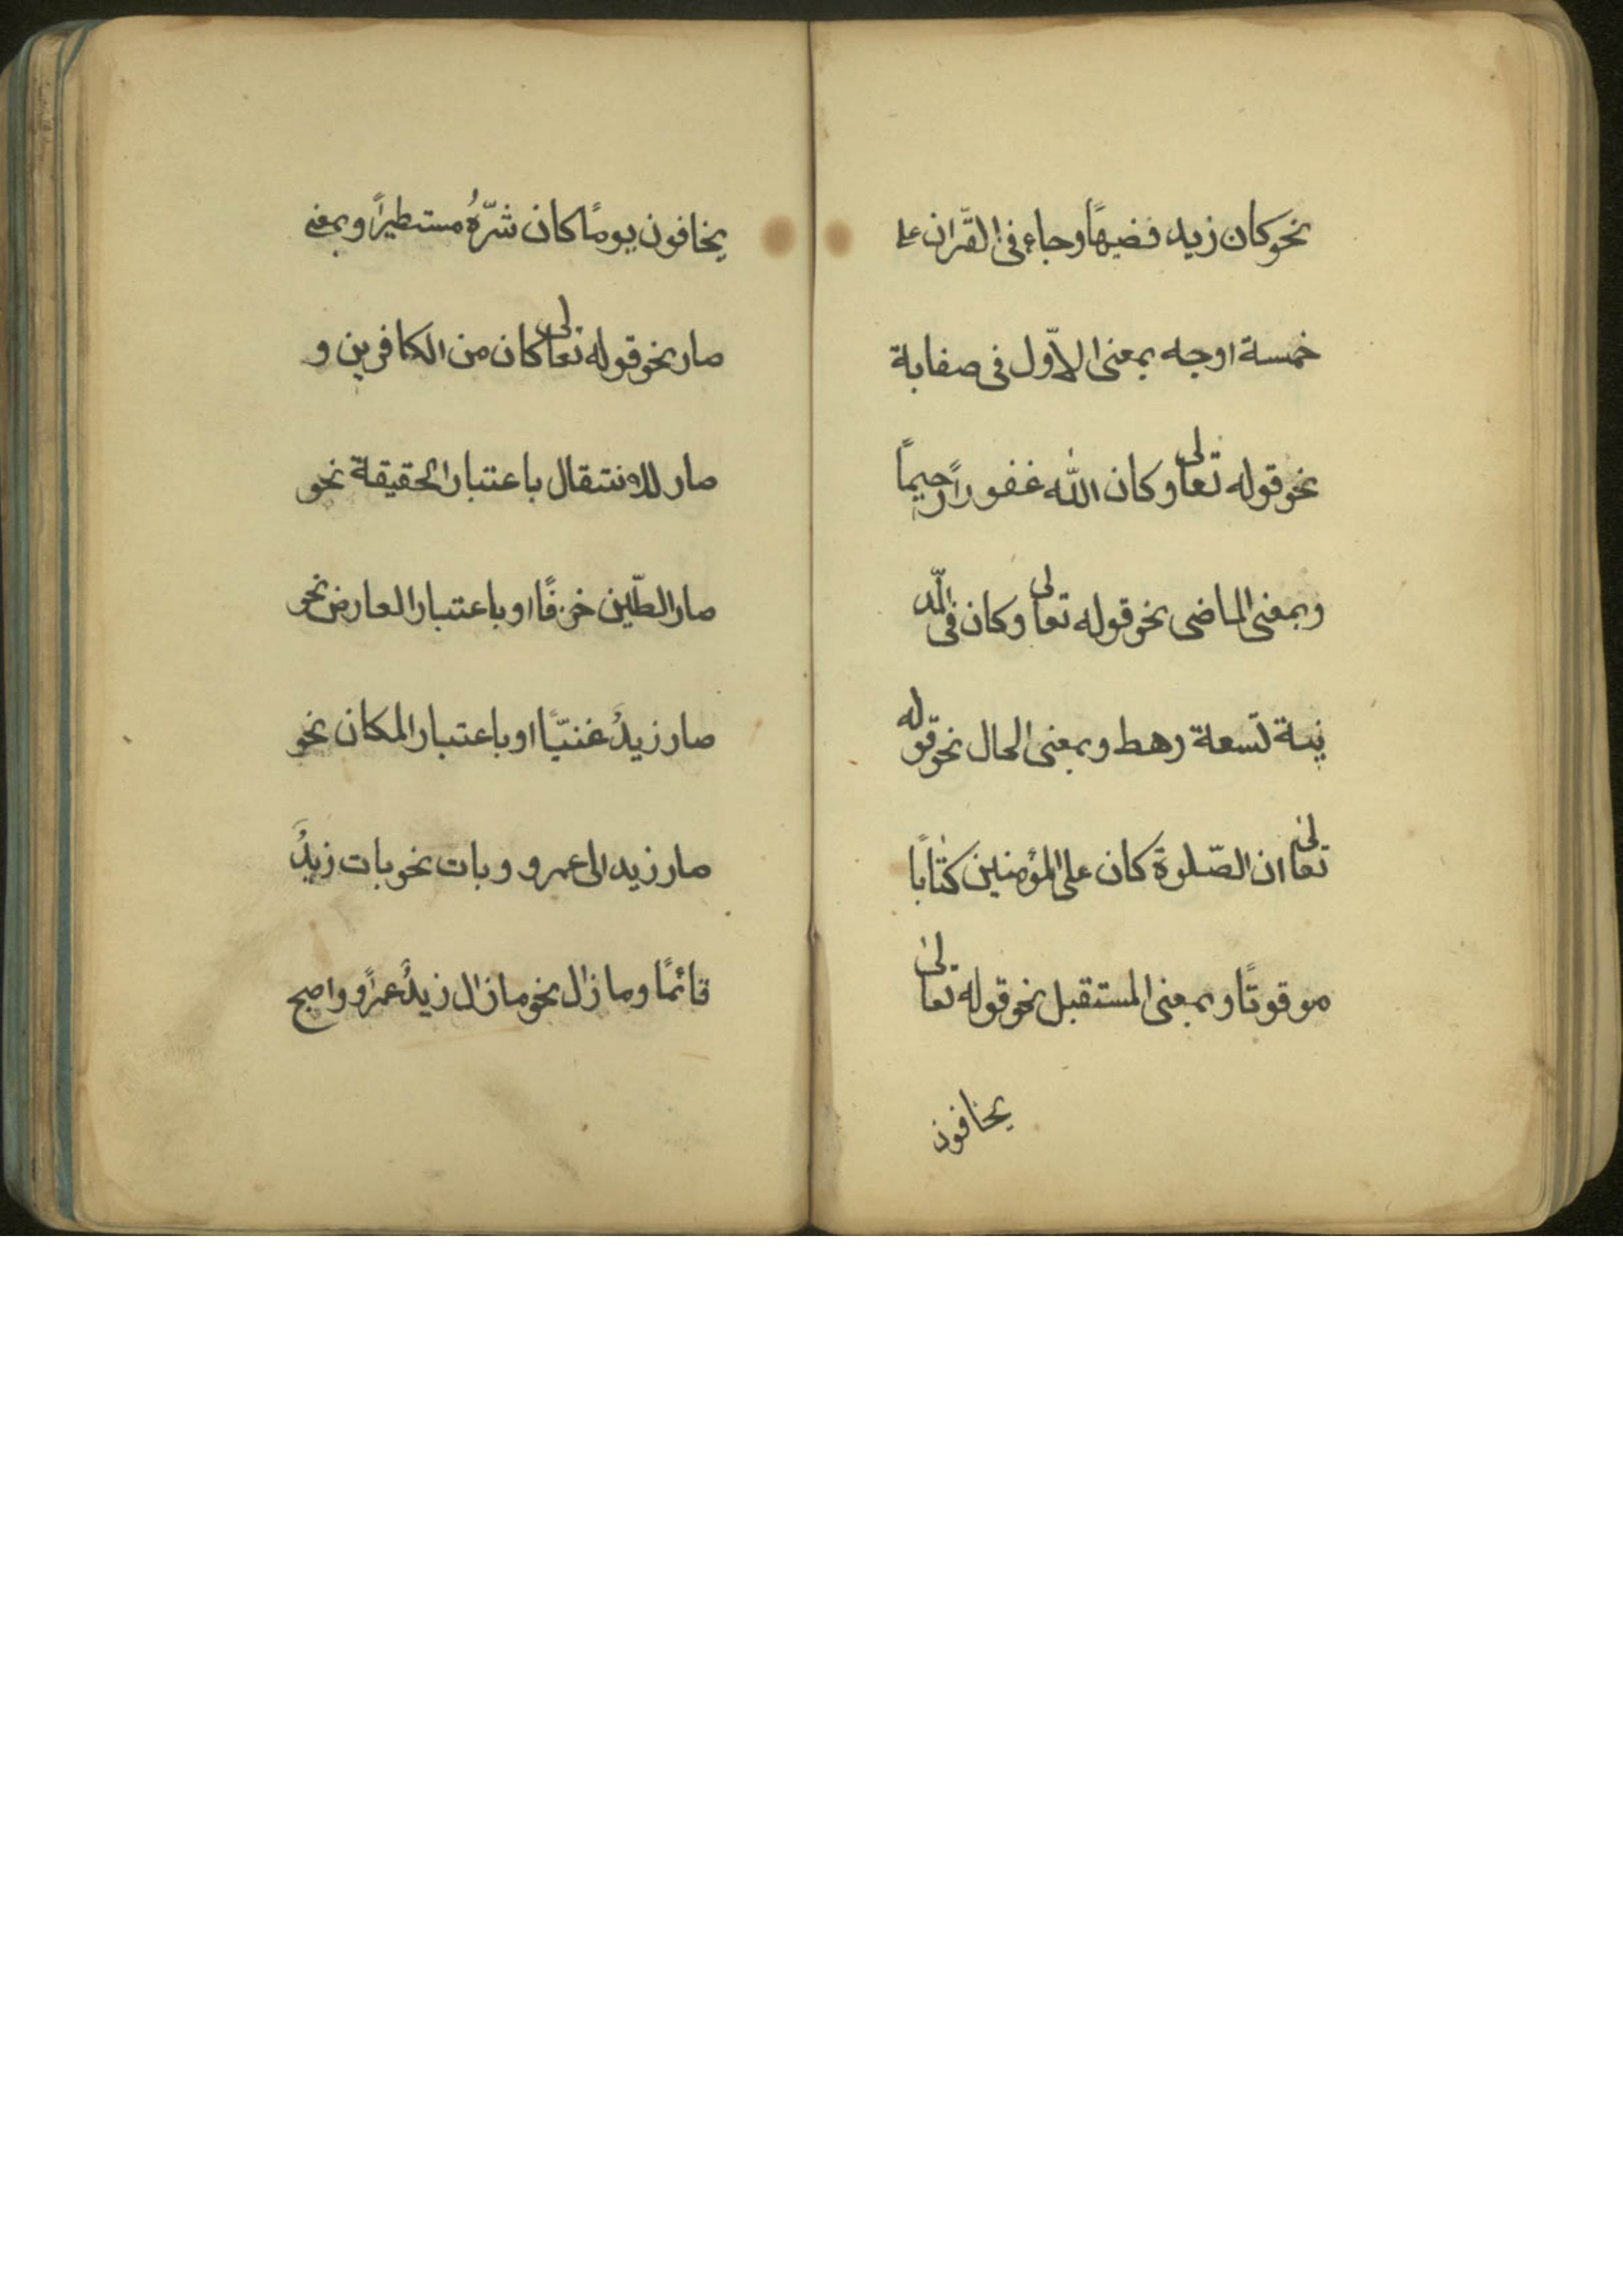 نحو كان زيد فضيهًا وجاء فى القرّان على
خمسة اوجه بمعنى الاوّل فى صفابة
نحو قوله تعالى وكان اللّٰه غفورًا رحيمًا
وبمعنى الماضى نحو قوله تعالى وكان فى المد
ينة تسعة رهط وبمعنى الحال نحو قوله
تعالى ان الصّلوة كان على المؤمنين كتابًا
موقوتًا وبمعنى المستقبل نحو قوله تعالى
يخافون
يخافون يومًا كان شرّهُ مستطيرًا وبمعنى
صار نحو قوله تعالى كان من الكافرين و
صار للانتقال باعتبار الحقيقة نحو
صار الطّين خزفًا او باعتبار العارض نحو
صار زيدٌ غنيًّا او باعتبار المكان نحو
صار زيد الى عمرو وبات نحو بات زيدٌ
قائمًا وما زال نحو ما زال زيدٌ عمرًا واصبح